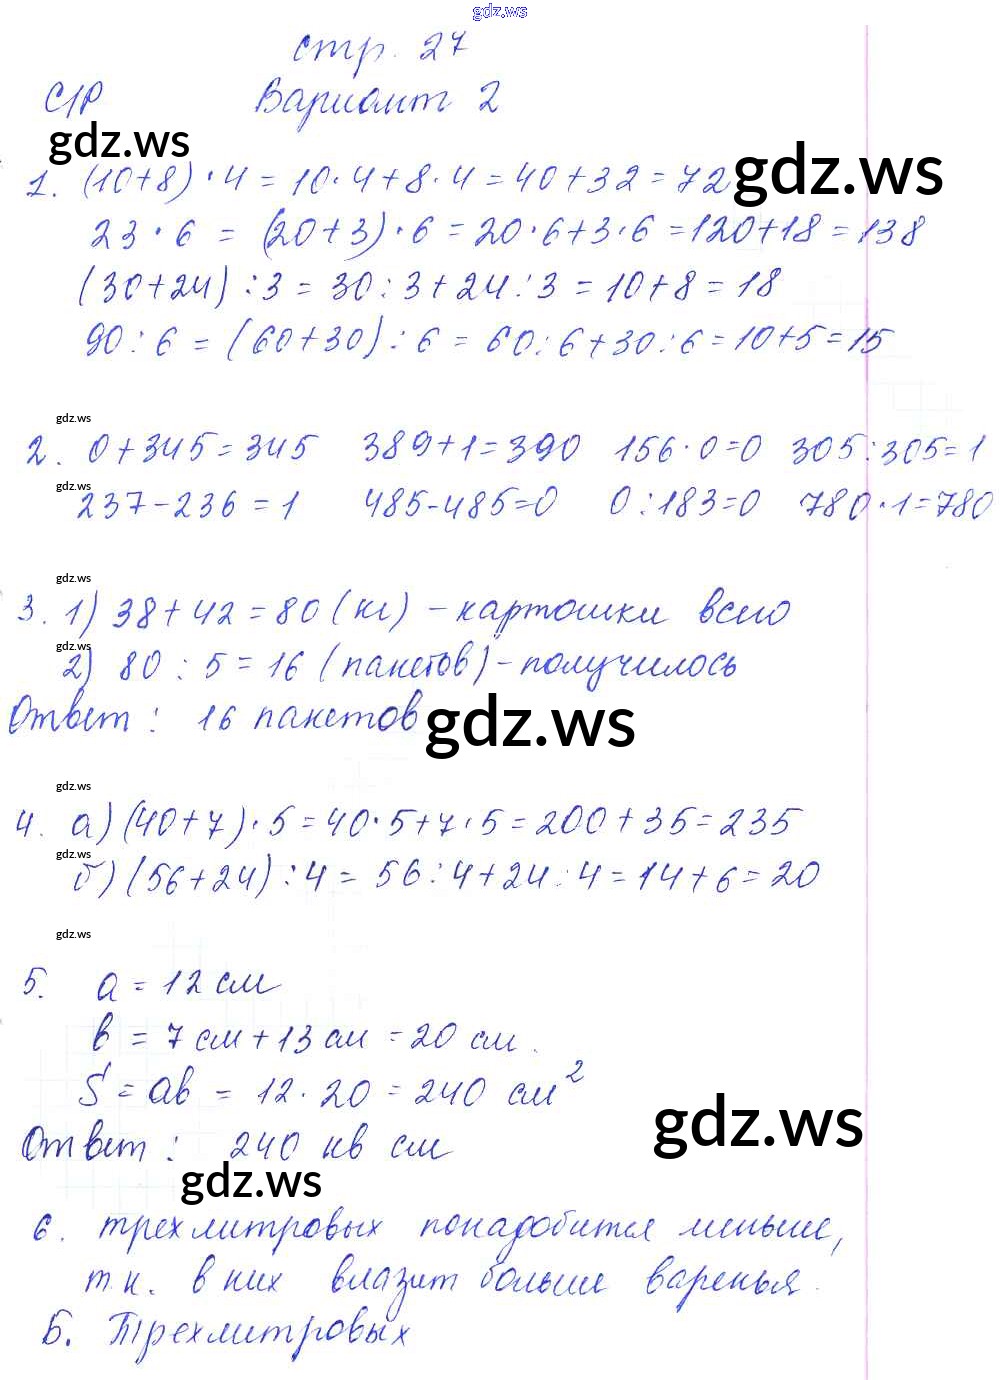 gdz.ws
стр. 27
С/Р Вариант 2
gdz.ws
gdz.ws
1. (10+8)·4=10·4+8·4=40+32=72
23·6=(20+3)·6=20·6+3·6=120+18=138
(30+24):3=30:3+24:3=10+8=18
90:6=(60+30):6=60:6+30:6=10+5=15
gdz.ws
2. 0+345=345 389+1=390 156·0=0 305:305=1
gdz.ws
237-236=1 485-485=0 0:183=0 780·1=780
gdz.ws
3. 1) 38+42=80 (кг) - картошки всего
gdz.ws
2) 80:5=16 (пакетов) - получилось
Ответ: 16 пакетов
gdz.ws
gdz.ws
4. а) (40+7)·5=40·5+7·5=200+35=235
gdz.ws
б) (56+24):4=56:4+24:4=14+6=20
gdz.ws
5. a=12 см
b=7 см+13 см=20 см.
S=ab=12·20=240 см²
gdz.ws
Ответ: 240 кв см
gdz.ws
6. трехлитровых понадобится меньше,
т.к. в них влазит больше варенья.
Б. Трехлитровых